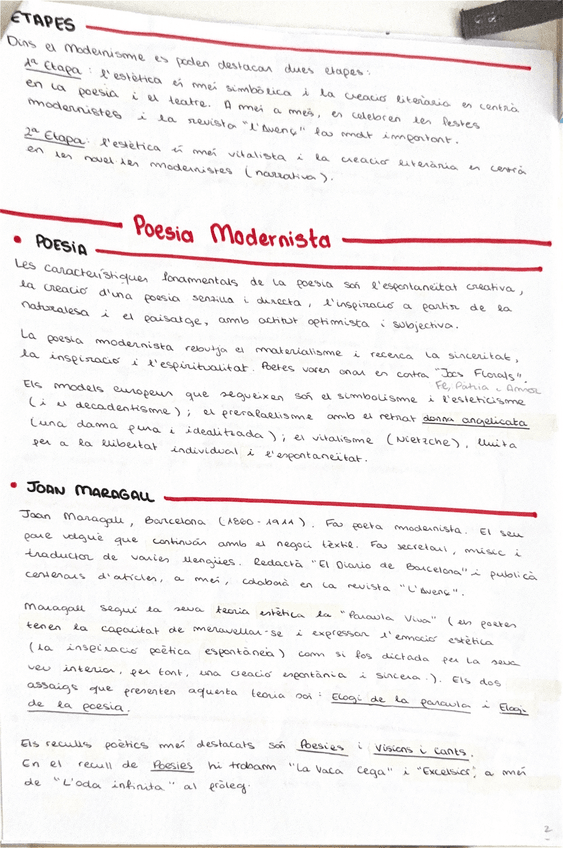 ETAPES
Dins el Modernisme es poden destacar dues etapes:
1ª Etapa: l'estètica és més simbòlica i la creació literària es centrà
en la poesia i el teatre. A més a més, es celebren les festes
modernistes i la revista "L'Avenç" fou molt important.
2ª Etapa: l'estètica és més vitalista i la creació literària es centrà
en les novel·les modernistes (narrativa).
Poesia Modernista
• POESIA
Les característiques fonamentals de la poesia són l'espontaneïtat creativa,
la creació d'una poesia senzilla i directa, l'inspiració a partir de la
naturalesa i el paisatge, amb actitut optimista i subjectiva.
La poesia modernista rebutja el materialisme i recerca la sinceritat,
la inspiració i l'espiritualitat. Poetes varen anar en contra "Jocs Florals".
Fe, Pàtria i Amor
Els models europeus que segueixen són el simbolisme i l'esteticisme
(i el decadentisme); el prerafaelisme amb el retrat donna angelicata
(una dama pura i idealitzada); el vitalisme (Nietzche), lluita
per a la llibertat individual i l'espontaneïtat.
• JOAN MARAGALL
Joan Maragall, Barcelona (1860-1911). Fou poeta modernista. El seu
pare volgué que continuàs amb el negoci tèxtil. Fou secretari, músic i
traductor de vàries llengües. Redactà "El Diario de Barcelona" i publicà
centenars d'articles, a més, colaborà en la revista "L'Avenç".
Maragall seguí la seva teoria estètica la "Paraula Viva" (els poetes
tenen la capacitat de meravellar-se i expressar l'emoció estètica
(la inspiració poètica espontànea) com si fos dictada per la seva
veu interior, per tant, una creació espontània i sincera.). Els dos
assaigs que presenten aquesta teoria són: Elogi de la paraula i Elogi
de la poesia.
Els reculls poètics més destacats són Poesies i Visions i cants.
En el recull de Poesies hi trobam "La Vaca Cega" i "Excelsior", a més
de "L'oda infinita" al pròleg.
2